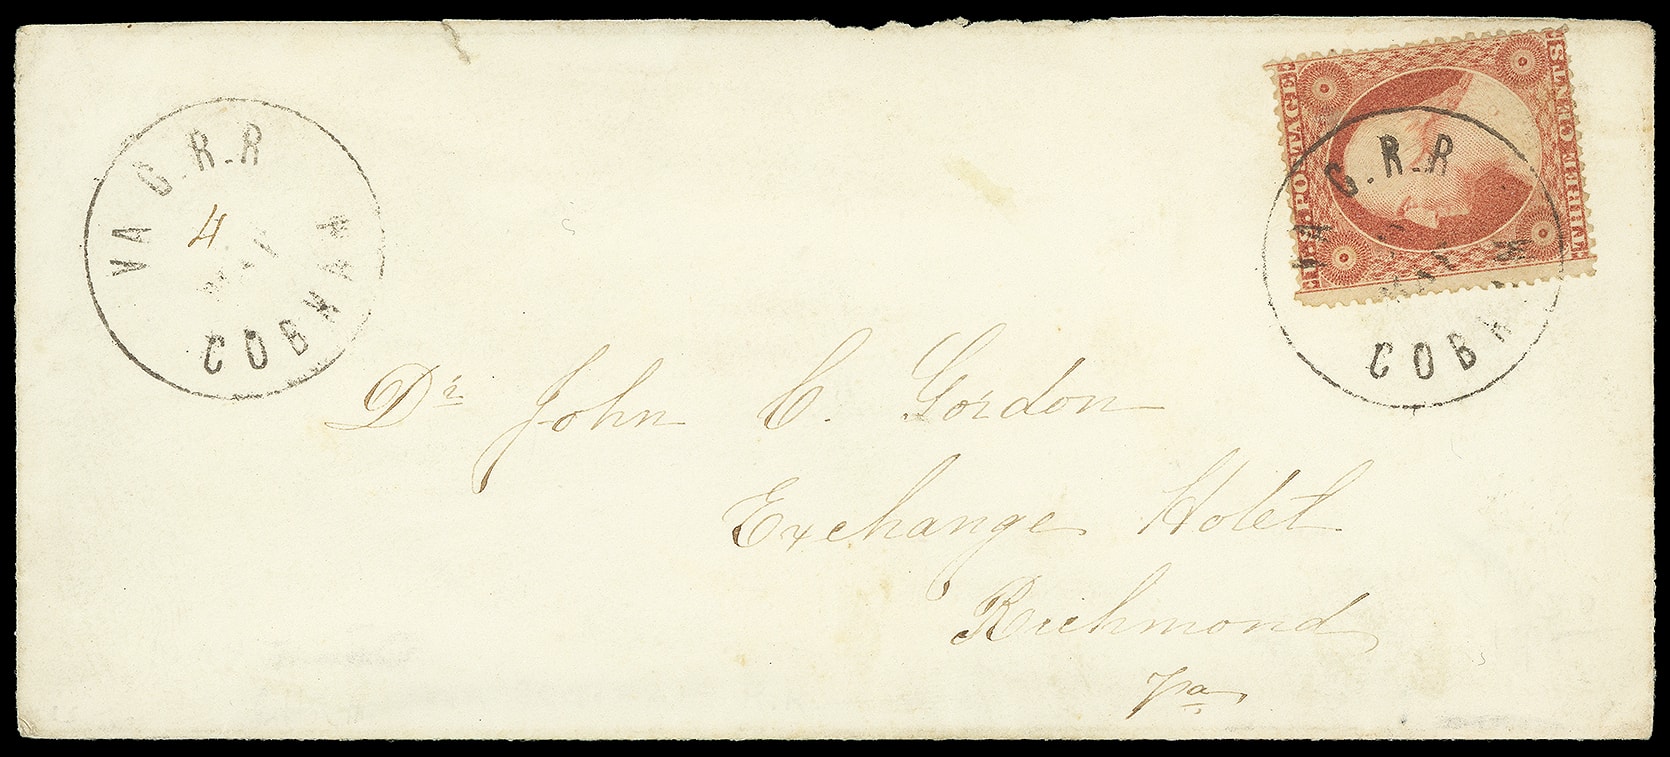 VA C.R.R
4
MAY
COBHAM
U.S. POSTAGE
THREE CENTS
C.R.R
COBH
Dr John C. Gordon
Exchange Hotel
Richmond
Va